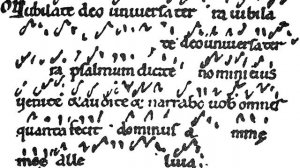 Iubilate deo universa ter ra iubila
te deo universa ter
ra psalmum dicite nomini eius
venite & audite & narrabo vob omnes
quanta fecit dominus a mme
mee alle luia.